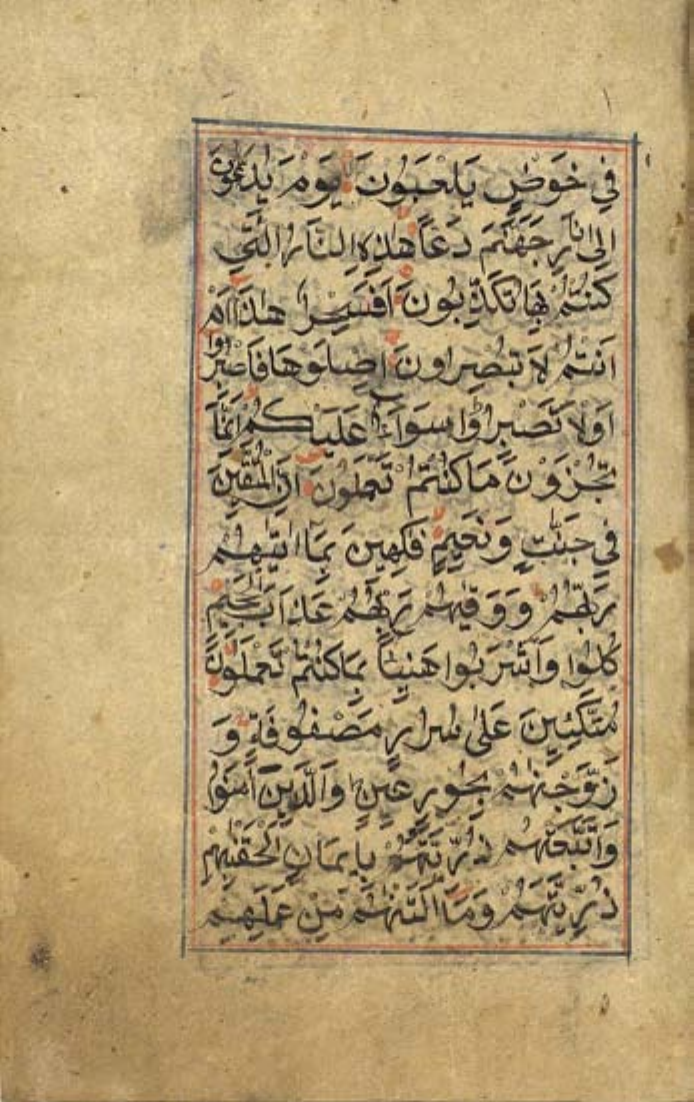 فِي خَوْضٍ يَلْعَبُونَ يَوْمَ يُدَعُّونَ
اِلٰى نَارِ جَهَنَّمَ دَعًّا هٰذِهِ النَّارُ الَّتِي
كُنْتُمْ بِهَا تُكَذِّبُونَ اَفَسِحْرٌ هٰذَا اَمْ
اَنْتُمْ لَا تُبْصِرُونَ اِصْلَوْهَا فَاصْبِرُوا
اَوْ لَا تَصْبِرُوا سَوَاءٌ عَلَيْكُمْ اِنَّمَا
تُجْزَوْنَ مَا كُنْتُمْ تَعْمَلُونَ اِنَّ الْمُتَّقِينَ
فِي جَنّٰتٍ وَنَعِيمٍ فٰكِهِينَ بِمَا اٰتٰيهُمْ
رَبُّهُمْ وَوَقٰيهُمْ رَبُّهُمْ عَذَابَ الْجَحِيمِ
كُلُوا وَاشْرَبُوا هَنِيئًا بِمَا كُنْتُمْ تَعْمَلُونَ
مُتَّكِئِينَ عَلٰى سُرُرٍ مَصْفُوفَةٍ وَ
زَوَّجْنٰهُمْ بِحُورٍ عِينٍ وَالَّذِينَ اٰمَنُوا
وَاتَّبَعَتْهُمْ ذُرِّيَّتُهُمْ بِاِيمَانٍ اَلْحَقْنَا بِهِمْ
ذُرِّيَّتَهُمْ وَمَا اَلَتْنٰهُمْ مِنْ عَمَلِهِمْ